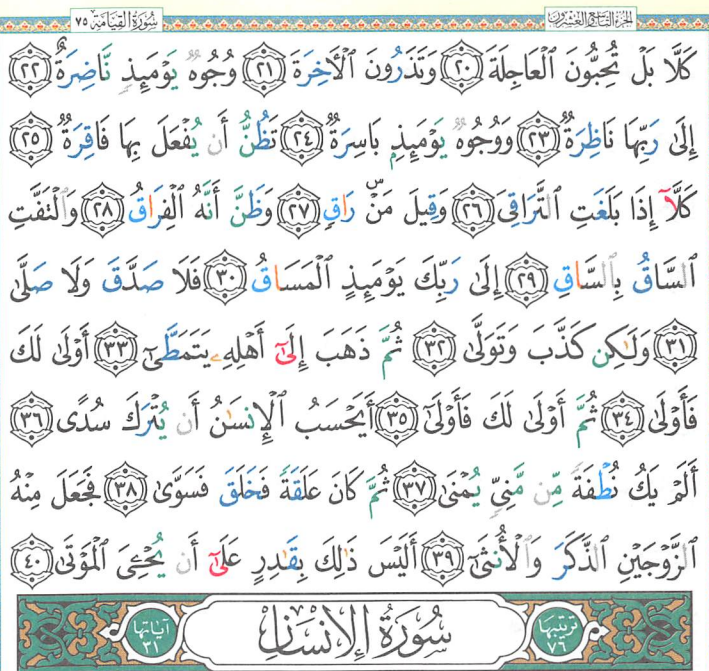 الجزء التاسع والعشرون سُورَةُ القِيَامَة ٧٥
كَلَّا بَلْ تُحِبُّونَ ٱلْعَاجِلَةَ ٢٠ وَتَذَرُونَ ٱلْآخِرَةَ ٢١ وُجُوهٌ يَوْمَئِذٍ نَّاضِرَةٌ ٢٢
إِلَىٰ رَبِّهَا نَاظِرَةٌ ٢٣ وَوُجُوهٌ يَوْمَئِذٍۭ بَاسِرَةٌ ٢٤ تَظُنُّ أَن يُفْعَلَ بِهَا فَاقِرَةٌ ٢٥
كَلَّآ إِذَا بَلَغَتِ ٱلتَّرَاقِيَ ٢٦ وَقِيلَ مَنْ ۜ رَاقٍ ٢٧ وَظَنَّ أَنَّهُ ٱلْفِرَاقُ ٢٨ وَٱلْتَفَّتِ
ٱلسَّاقُ بِٱلسَّاقِ ٢٩ إِلَىٰ رَبِّكَ يَوْمَئِذٍ ٱلْمَسَاقُ ٣٠ فَلَا صَدَّقَ وَلَا صَلَّىٰ
٣١ وَلَـٰكِن كَذَّبَ وَتَوَلَّىٰ ٣٢ ثُمَّ ذَهَبَ إِلَىٰٓ أَهْلِهِۦ يَتَمَطَّىٰٓ ٣٣ أَوْلَىٰ لَكَ
فَأَوْلَىٰ ٣٤ ثُمَّ أَوْلَىٰ لَكَ فَأَوْلَىٰٓ ٣٥ أَيَحْسَبُ ٱلْإِنسَـٰنُ أَن يُتْرَكَ سُدًى ٣٦
أَلَمْ يَكُ نُطْفَةً مِّن مَّنِىٍّ يُمْنَىٰ ٣٧ ثُمَّ كَانَ عَلَقَةً فَخَلَقَ فَسَوَّىٰ ٣٨ فَجَعَلَ مِنْهُ
ٱلزَّوْجَيْنِ ٱلذَّكَرَ وَٱلْأُنثَىٰٓ ٣٩ أَلَيْسَ ذَٰلِكَ بِقَـٰدِرٍ عَلَىٰٓ أَن يُحْـِۧىَ ٱلْمَوْتَىٰ ٤٠
ترتيبها ٧٦ سُورَةُ الإِنْسَانِ آياتها ٣١